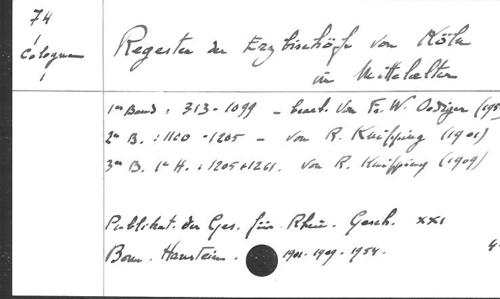 74
Cologne
Regesten der Erzbischöfe von Köln
im Mittelalter
1er Band : 313-1099 - bearb. von Fr. W. Oediger (195
2e B. : 1100 - 1205 - von R. Knipping (1901)
3e B. 1e H. : 1205-1261. von R. Knipping (1909)
Publikat. der Ges. für Rhein. Gesch. XXI
Bonn. Hanstein. 1901-1909-1954.